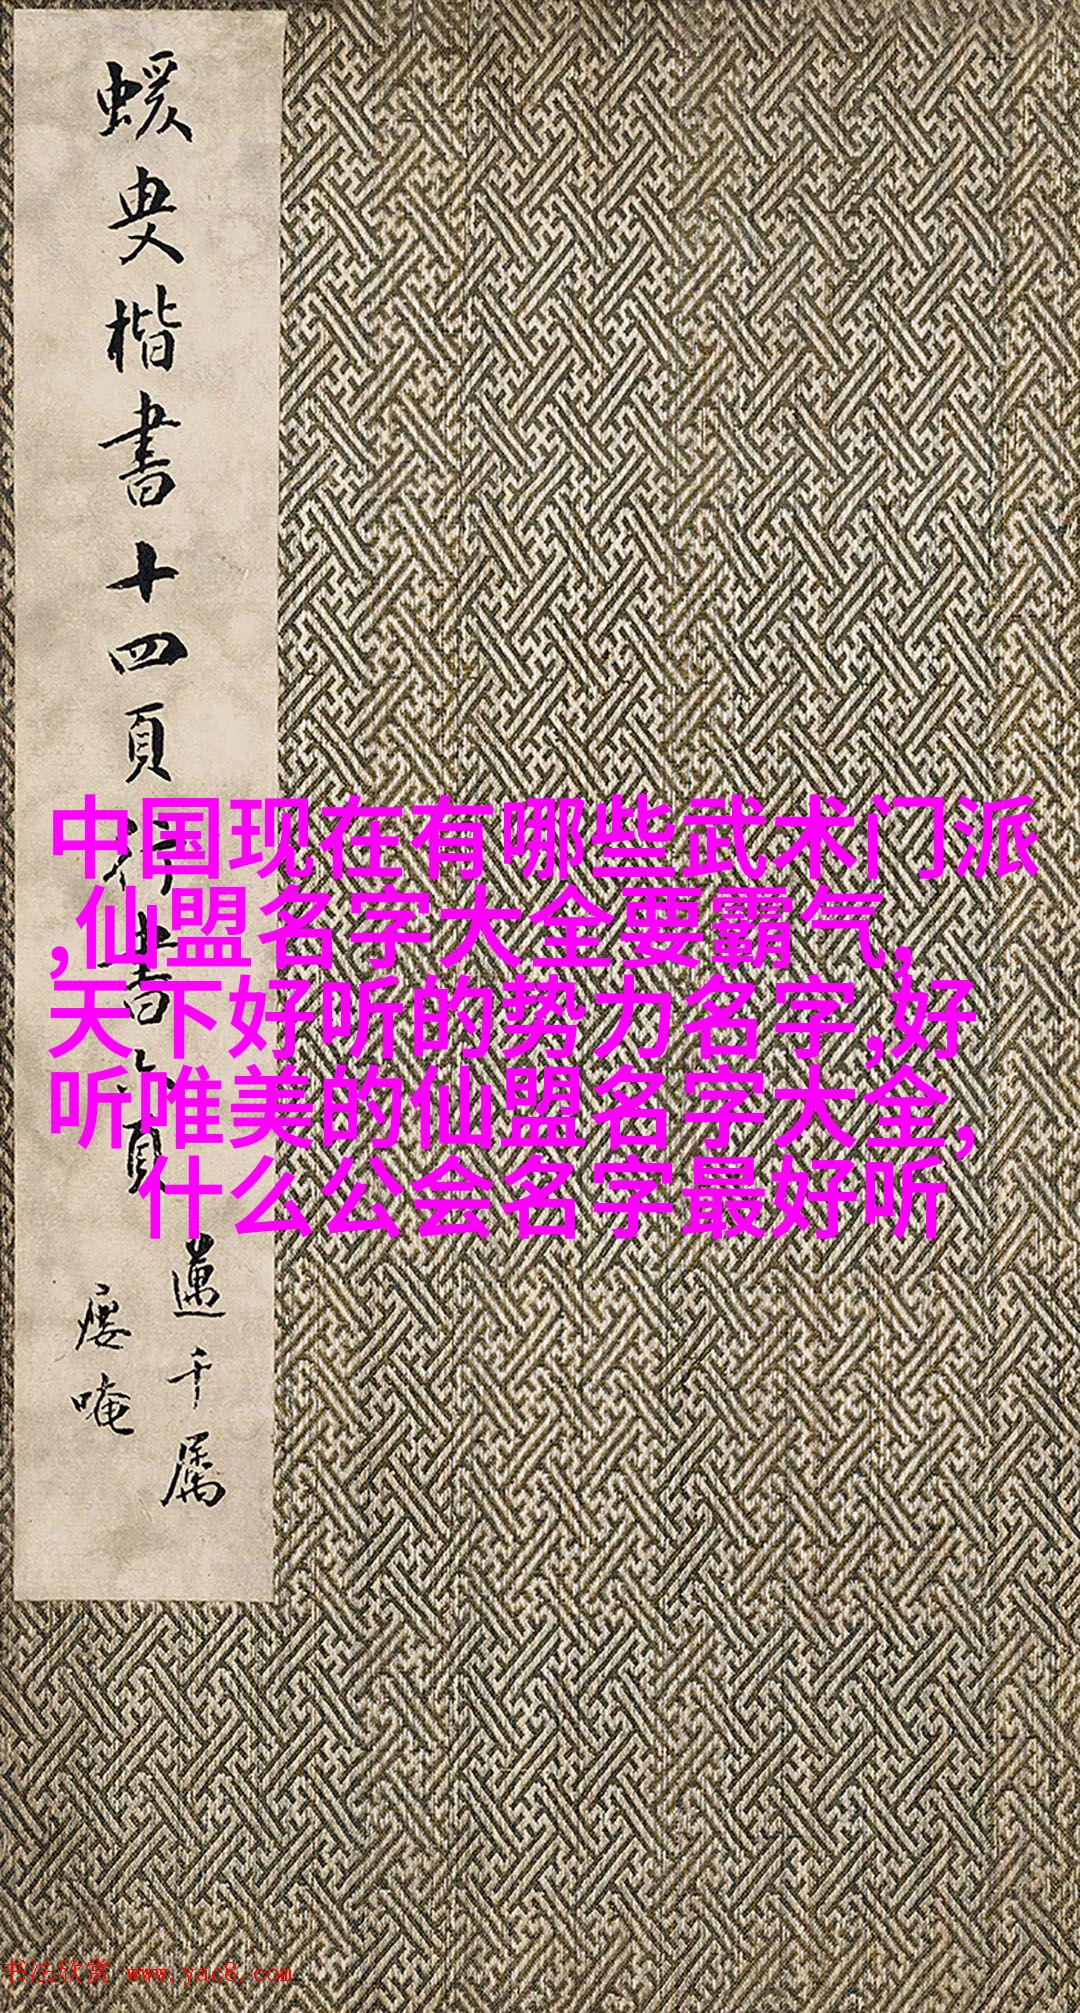 蝯叟楷書十四頁行書六頁
邁千屬
廔唵
中国现在有哪些武术门派
,仙盟名字大全要霸气,
天下好听的势力名字,好
听唯美的仙盟名字大全,
什么公会名字最好听
书法欣赏 www.yac8.com